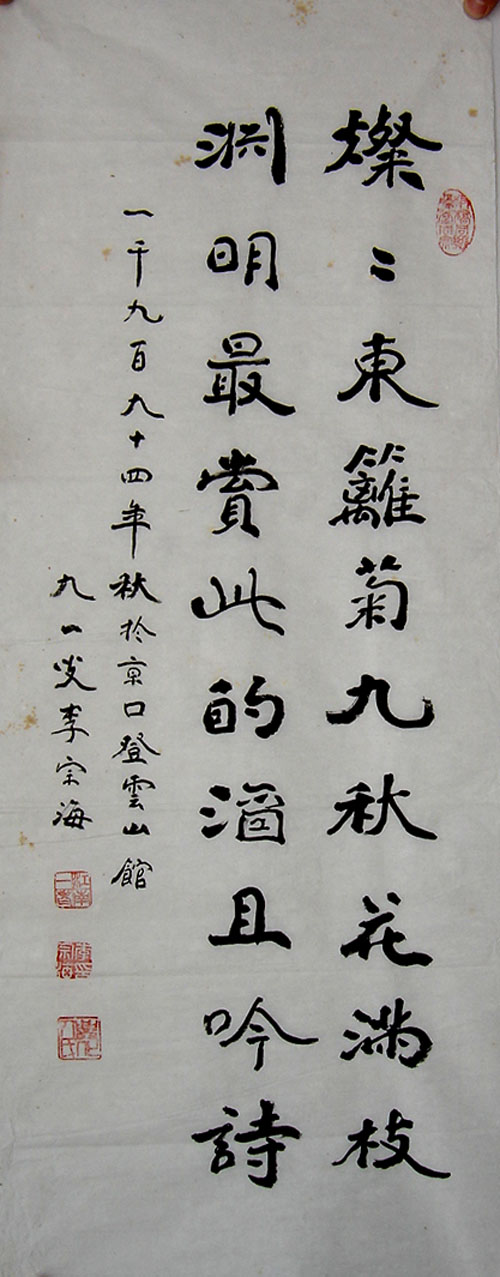 燦〻東籬菊九秋花滿枝
渊明最賞此酌酒且吟詩
一千九百九十四年秋於京口登雲山館
九一叟李宗海